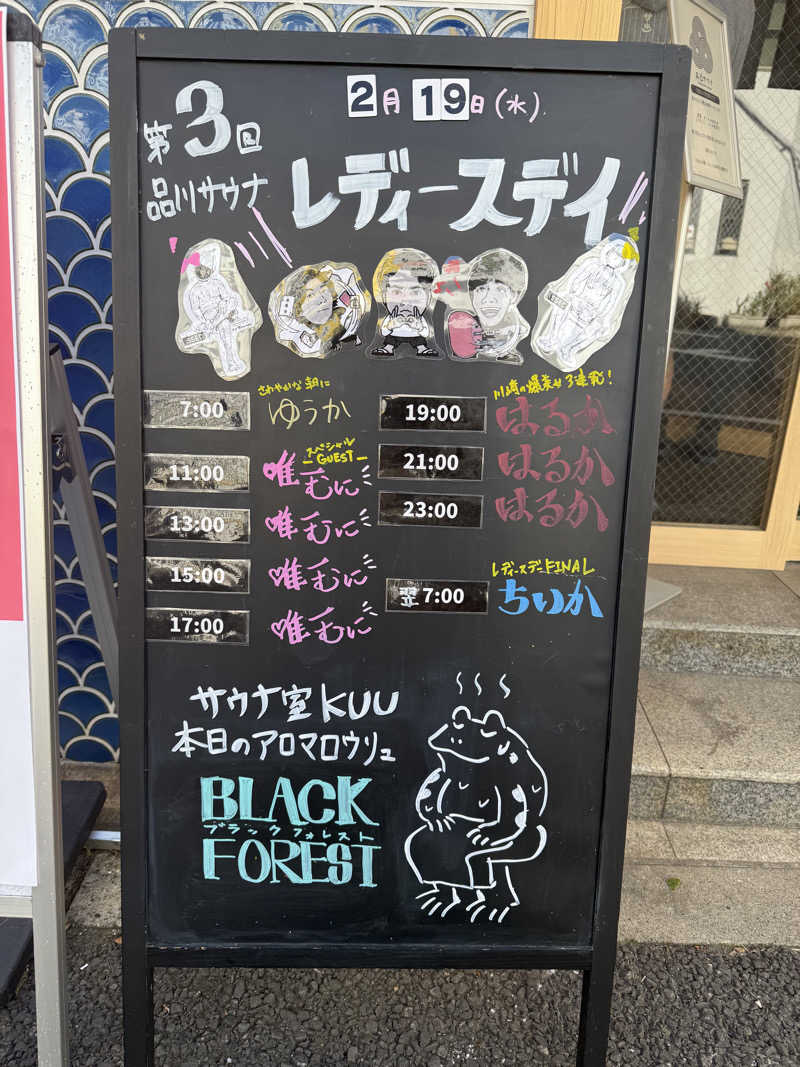 2月19日(水)
第3回
品川サウナ
レディースデイ
さわやかな朝に
7:00 ゆうか
スペシャル
GUEST
11:00 唯 むに
13:00 唯 むに
15:00 唯 むに
17:00 唯 むに
川崎の爆美女3連発!
19:00 はるか
21:00 はるか
23:00 はるか
レディースデーFINAL
翌7:00 ちいか
サウナ室KUU
本日のアロマロウリュ
BLACK
ブラックフォレスト
FOREST